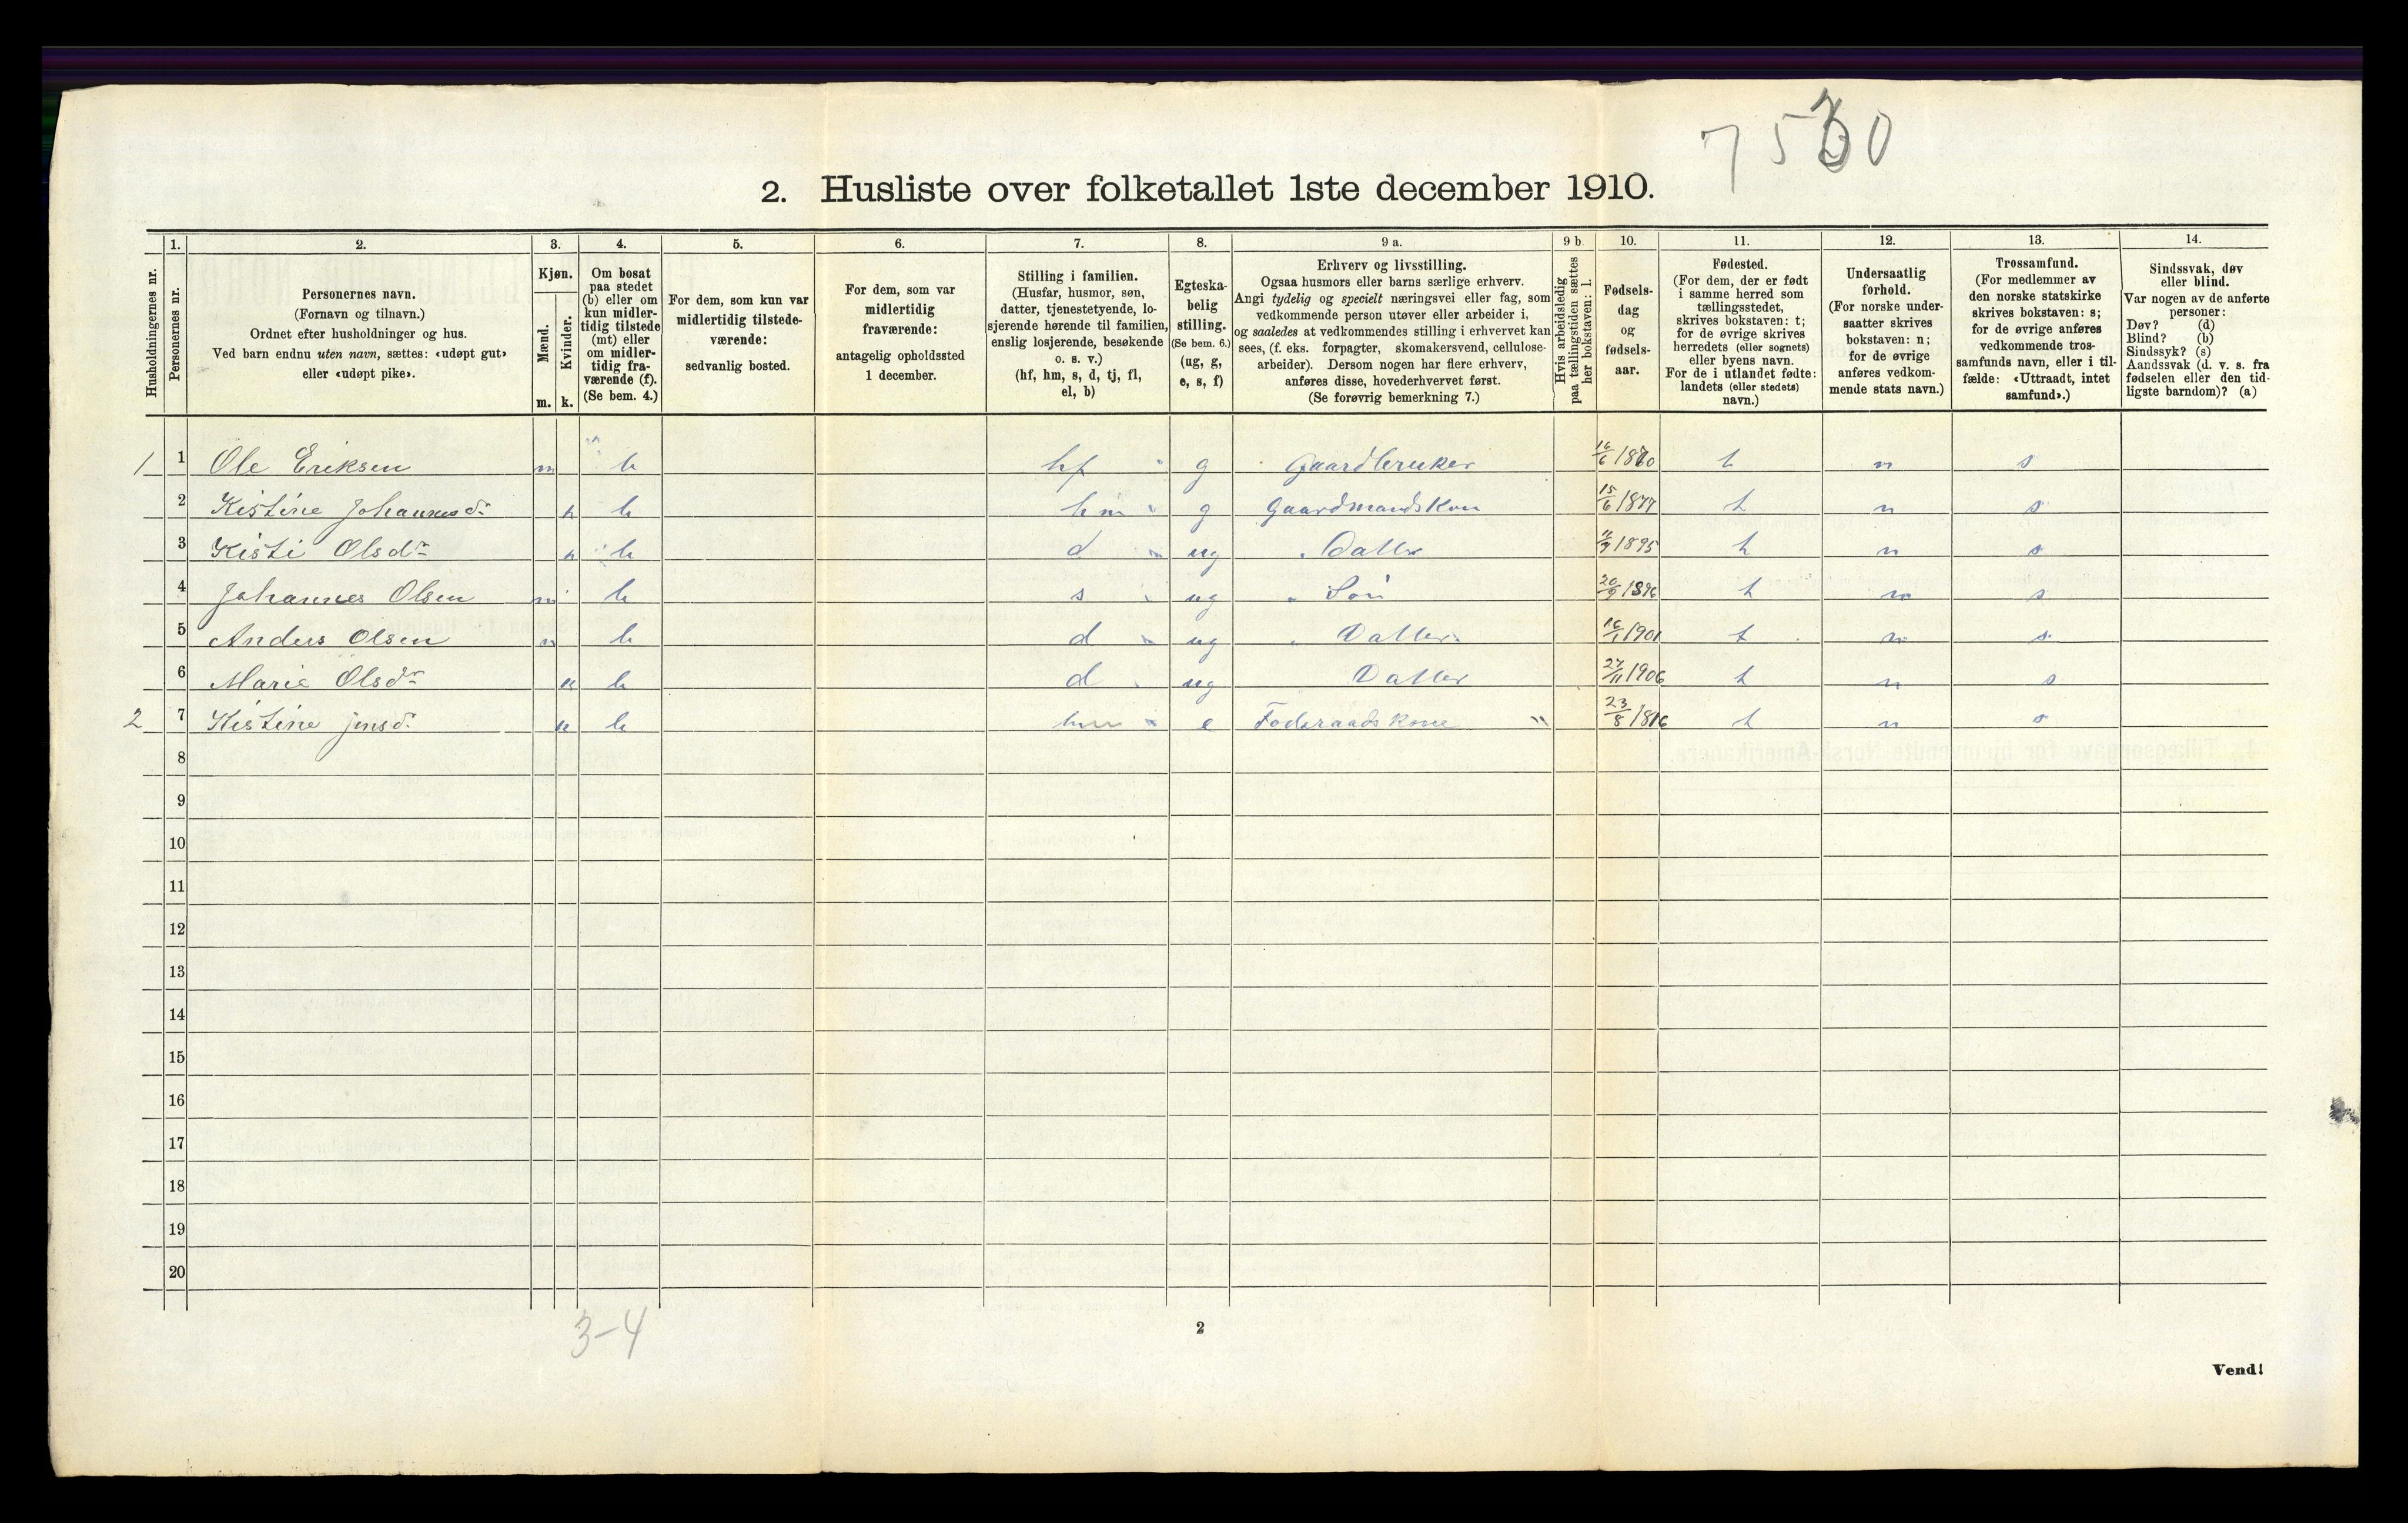 7530
2. Husliste over folketallet 1ste december 1910.
Husholdningernes nr.
1. Personernes nr.
2. Personernes navn.
(Fornavn og tilnavn.)
Ordnet efter husholdninger og hus.
Ved barn endnu uten navn, sættes: «udøpt gut»
eller «udøpt pike».
3. Kjøn.
Mænd. m.
Kvinder. k.
4. Om bosat
paa stedet
(b) eller om
kun midler-
tidig tilstede
(mt) eller
om midler-
tidig fra-
værende (f).
(Se bem. 4.)
5. For dem, som kun var
midlertidig tilstede-
værende:
sedvanlig bosted.
6. For dem, som var
midlertidig
fraværende:
antagelig opholdssted
1 december.
7. Stilling i familien.
(Husfar, husmor, søn,
datter, tjenestetyende, lo-
sjerende hørende til familien,
enslig losjerende, besøkende
o. s. v.)
(hf, hm, s, d, tj, fl,
el, b)
8. Egteska-
belig
stilling.
(Se bem. 6.)
(ug, g,
e, s, f)
9 a. Erhverv og livsstilling.
Ogsaa husmors eller barns særlige erhverv.
Angi tydelig og specielt næringsvei eller fag, som
vedkommende person utøver eller arbeider i,
og saaledes at vedkommendes stilling i erhvervet kan
sees, (f. eks. forpagter, skomakersvend, cellulose-
arbeider). Dersom nogen har flere erhverv,
anføres disse, hovederhvervet først.
(Se forøvrig bemerkning 7.)
9 b. Hvis arbeidsledig
paa tællingstiden sættes
her bokstaven: l.
10. Fødsels-
dag
og
fødsels-
aar.
11. Fødested.
(For dem, der er født
i samme herred som
tællingsstedet,
skrives bokstaven: t;
for de øvrige skrives
herredets (eller sognets)
eller byens navn.
For de i utlandet fødte:
landets (eller stedets)
navn.)
12. Undersaatlig
forhold.
(For norske under-
saatter skrives
bokstaven: n;
for de øvrige
anføres vedkom-
mende stats navn.)
13. Trossamfund.
(For medlemmer av
den norske statskirke
skrives bokstaven: s;
for de øvrige anføres
vedkommende tros-
samfunds navn, eller i til-
fælde: «Uttraadt, intet
samfund».)
14. Sindssvak, døv
eller blind.
Var nogen av de anførte
personer:
Døv? (d)
Blind? (b)
Sindssyk? (s)
Aandssvak (d. v. s. fra
fødselen eller den tid-
ligste barndom)? (a)
1 1 Ole Eriksen m b hf g Gaardbruker 1870 t n s
2 Kistine Johannesdr k b hm g Gaardmandskon 15/6 1877 t n s
3 Kisti Olsdr k b d ug Datter 1895 t n s
4 Johannes Olsen m b s ug Søn 20/9 1896 t n s
5 Anders Olsen m b d ug Datter 1901 t n s
6 Marie Olsdr k b d ug Datter 27/11 1906 t n s
2 7 Kistine Jensdr k b hm e Føderaadskone 23/8 1816 t n s
8
9
10
11
12
13
14
15
16
17
18
19
20
3-4
2
Vend!